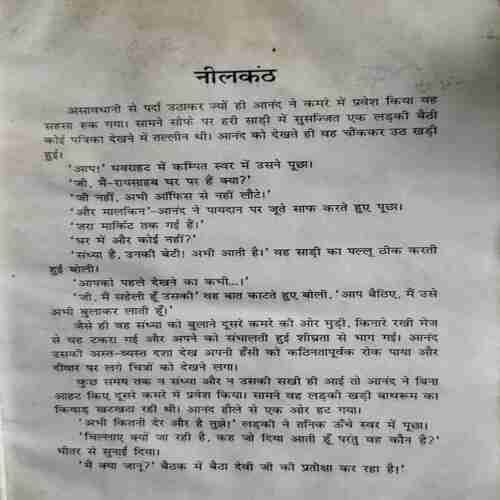 नीलकंठ
असावधानी से पर्दा उठाकर ज्यों ही आनंद ने कमरे में प्रवेश किया वह
सहसा रुक गया। सामने सोफे पर हरी साड़ी में सुसज्जित एक लड़की बैठी
कोई पत्रिका देखने में तल्लीन थी। आनंद को देखते ही वह चौंककर उठ खड़ी
हुई।
'आप!' घबराहट में कम्पित स्वर में उसने पूछा।
'जी, मैं-रायसाहब घर पर हैं क्या?'
'जी नहीं, अभी ऑफिस से नहीं लौटे।'
'और मालकिन'-आनंद ने पायदान पर जूते साफ करते हुए पूछा।
'जरा मार्किट तक गई हैं।'
'घर में और कोई नहीं?'
'संध्या है, उनकी बेटी! अभी आती है।' वह साड़ी का पल्लू ठीक करती
हुई बोली।
'आपको पहले देखने का कभी...!'
'जी, मैं सहेली हूँ उसकी' वह बात काटते हुए बोली, 'आप बैठिए, मैं उसे
अभी बुलाकर लाती हूँ।'
जैसे ही वह संध्या को बुलाने दूसरे कमरे की ओर मुड़ी, किनारे रखी मेज
से वह टकरा गई और अपने को संभालती हुई शीघ्रता से भाग गई। आनंद
उसकी अस्त-व्यस्त दशा देख अपनी हँसी को कठिनतापूर्वक रोक पाया और
दीवार पर लगे चित्रों को देखने लगा।
कुछ समय तक न संध्या और न उसकी सखी ही आई तो आनंद ने बिना
आहट किए दूसरे कमरे में प्रवेश किया। सामने वह लड़की खड़ी बाथरूम का
किवाड़ खटखटा रही थी। आनंद हौले से एक ओर हट गया।
'अभी कितनी देर और है तुझे।' लड़की ने तनिक ऊँचे स्वर में पूछा।
'चिल्लाए क्यों जा रही है, कह जो दिया आती हूँ परंतु वह कौन है?'
भीतर से सुनाई दिया।
'मैं क्या जानूं? बैठक में बैठा देवी जी की प्रतीक्षा कर रहा है।'